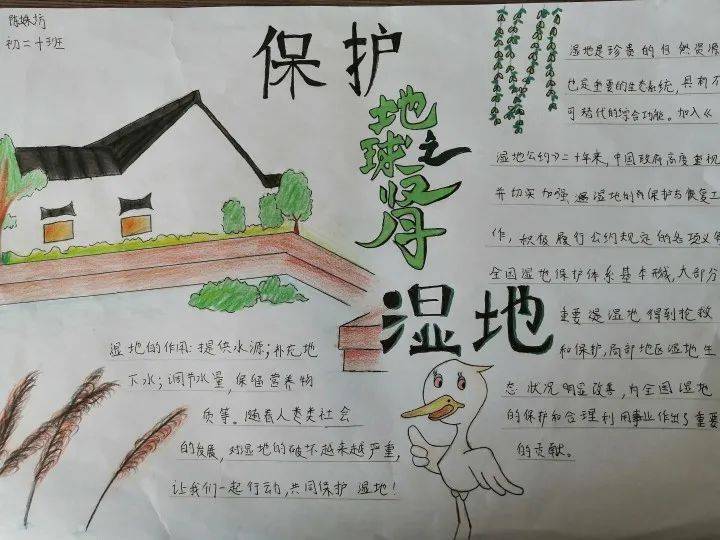 初二十班
保护
地球之肾
湿地
湿地是珍贵的自然资源
也是重要的生态系统,具有不
可替代的综合功能。加入《
湿地公约》二十年来,中国政府高度重视
并切实加强 湿地的 保护与恢复工
作,积极履行公约规定的各项义务
全国湿地保护体系基本形成,大部分
重要是湿地 得到抢救
和保护,局部地区湿地生
态 状况明显改善,为全国湿地
的保护和合理利用事业作出了重要
的贡献。
湿地的作用:提供水源;补充地
下水;调节水量,保留营养物
质等。随着人类社会
的发展,对湿地的破坏越来越严重,
让我们一起行动,共同保护 湿地!